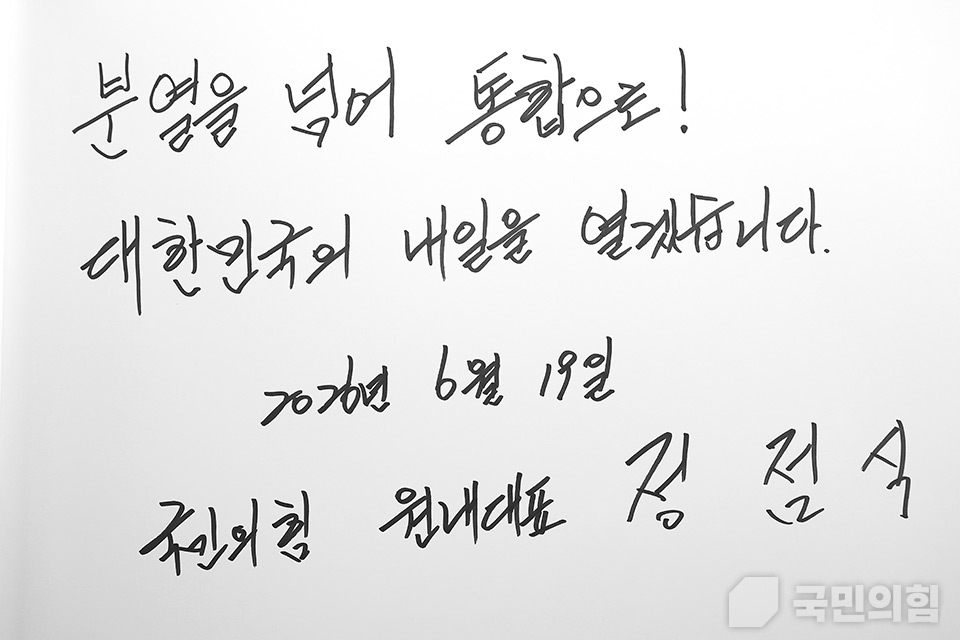 분열을 넘어 통합으로!
대한민국의 내일을 열겠습니다.
2026년 6월 19일
국민의힘 원내대표 정점식
국민의힘